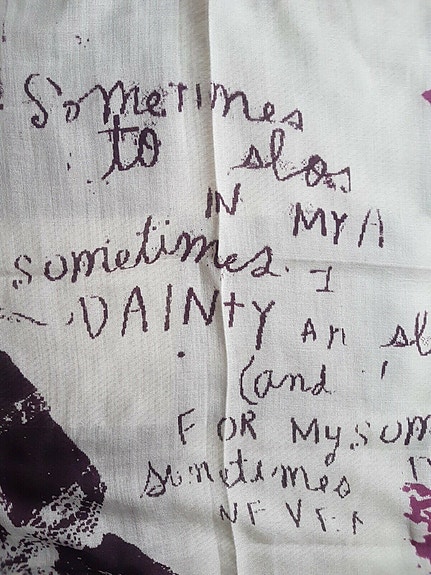 Sometimes
to slow
IN MY A
sometimes. I
DAINTY AM sl
(and
FOR My SOM
sometimes
NEVER